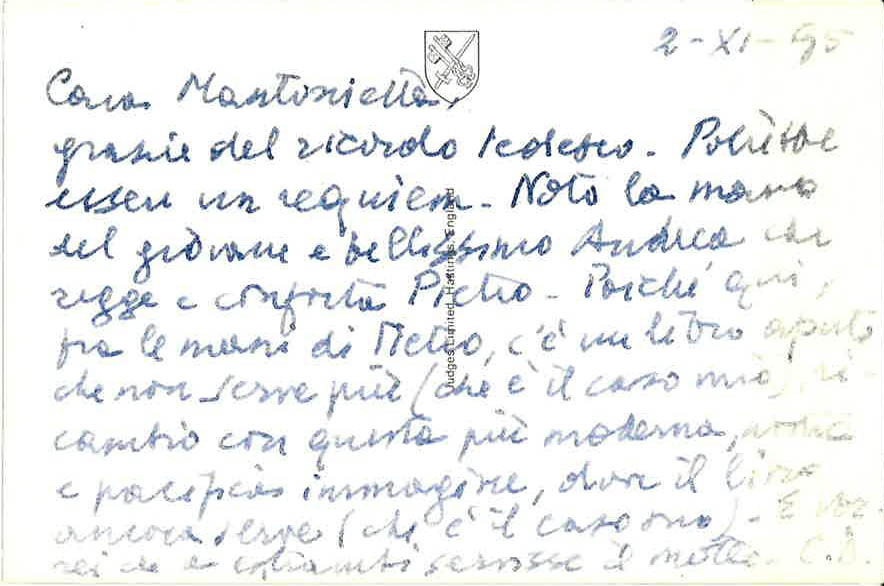 2-XI-95
Cara Mantonietta,
grazie del ricordo tedesco. Potrebbe
essere un requiem. Noto la mano
del giovane e bellissimo Andrea che
regge e conforta Pietro. Poiché qui,
fra le mani di Pietro, c'è un libro aperto
che non serve più (che è il caso mio), ri-
cambio con questa più moderna,
e pacifica immagine, dove il libro
ancora serve (che è il caso suo). E vor-
rei che a entrambi servisse il motto. C.D.
Judges Limited, Hastings, England